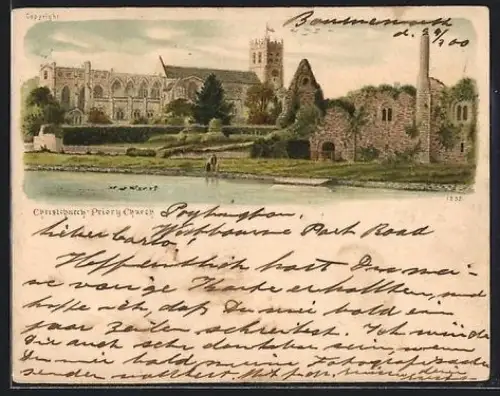 Copyright
Bournemouth
d. 24/7 00
Christchurch Priory Church
1232
Poghampton,
Lieber Carlo! Westbourne Park Road
Hoffentlich hast Du mei-
ne vorige Karte erhalten, und
hoffe ich, daß Du mir bald ein
paar Zeilen schreibst. Ich würde
Dir auch sehr dankbar sein, wenn
Du mir bald meine Fotografie
senden wolltest. Mit